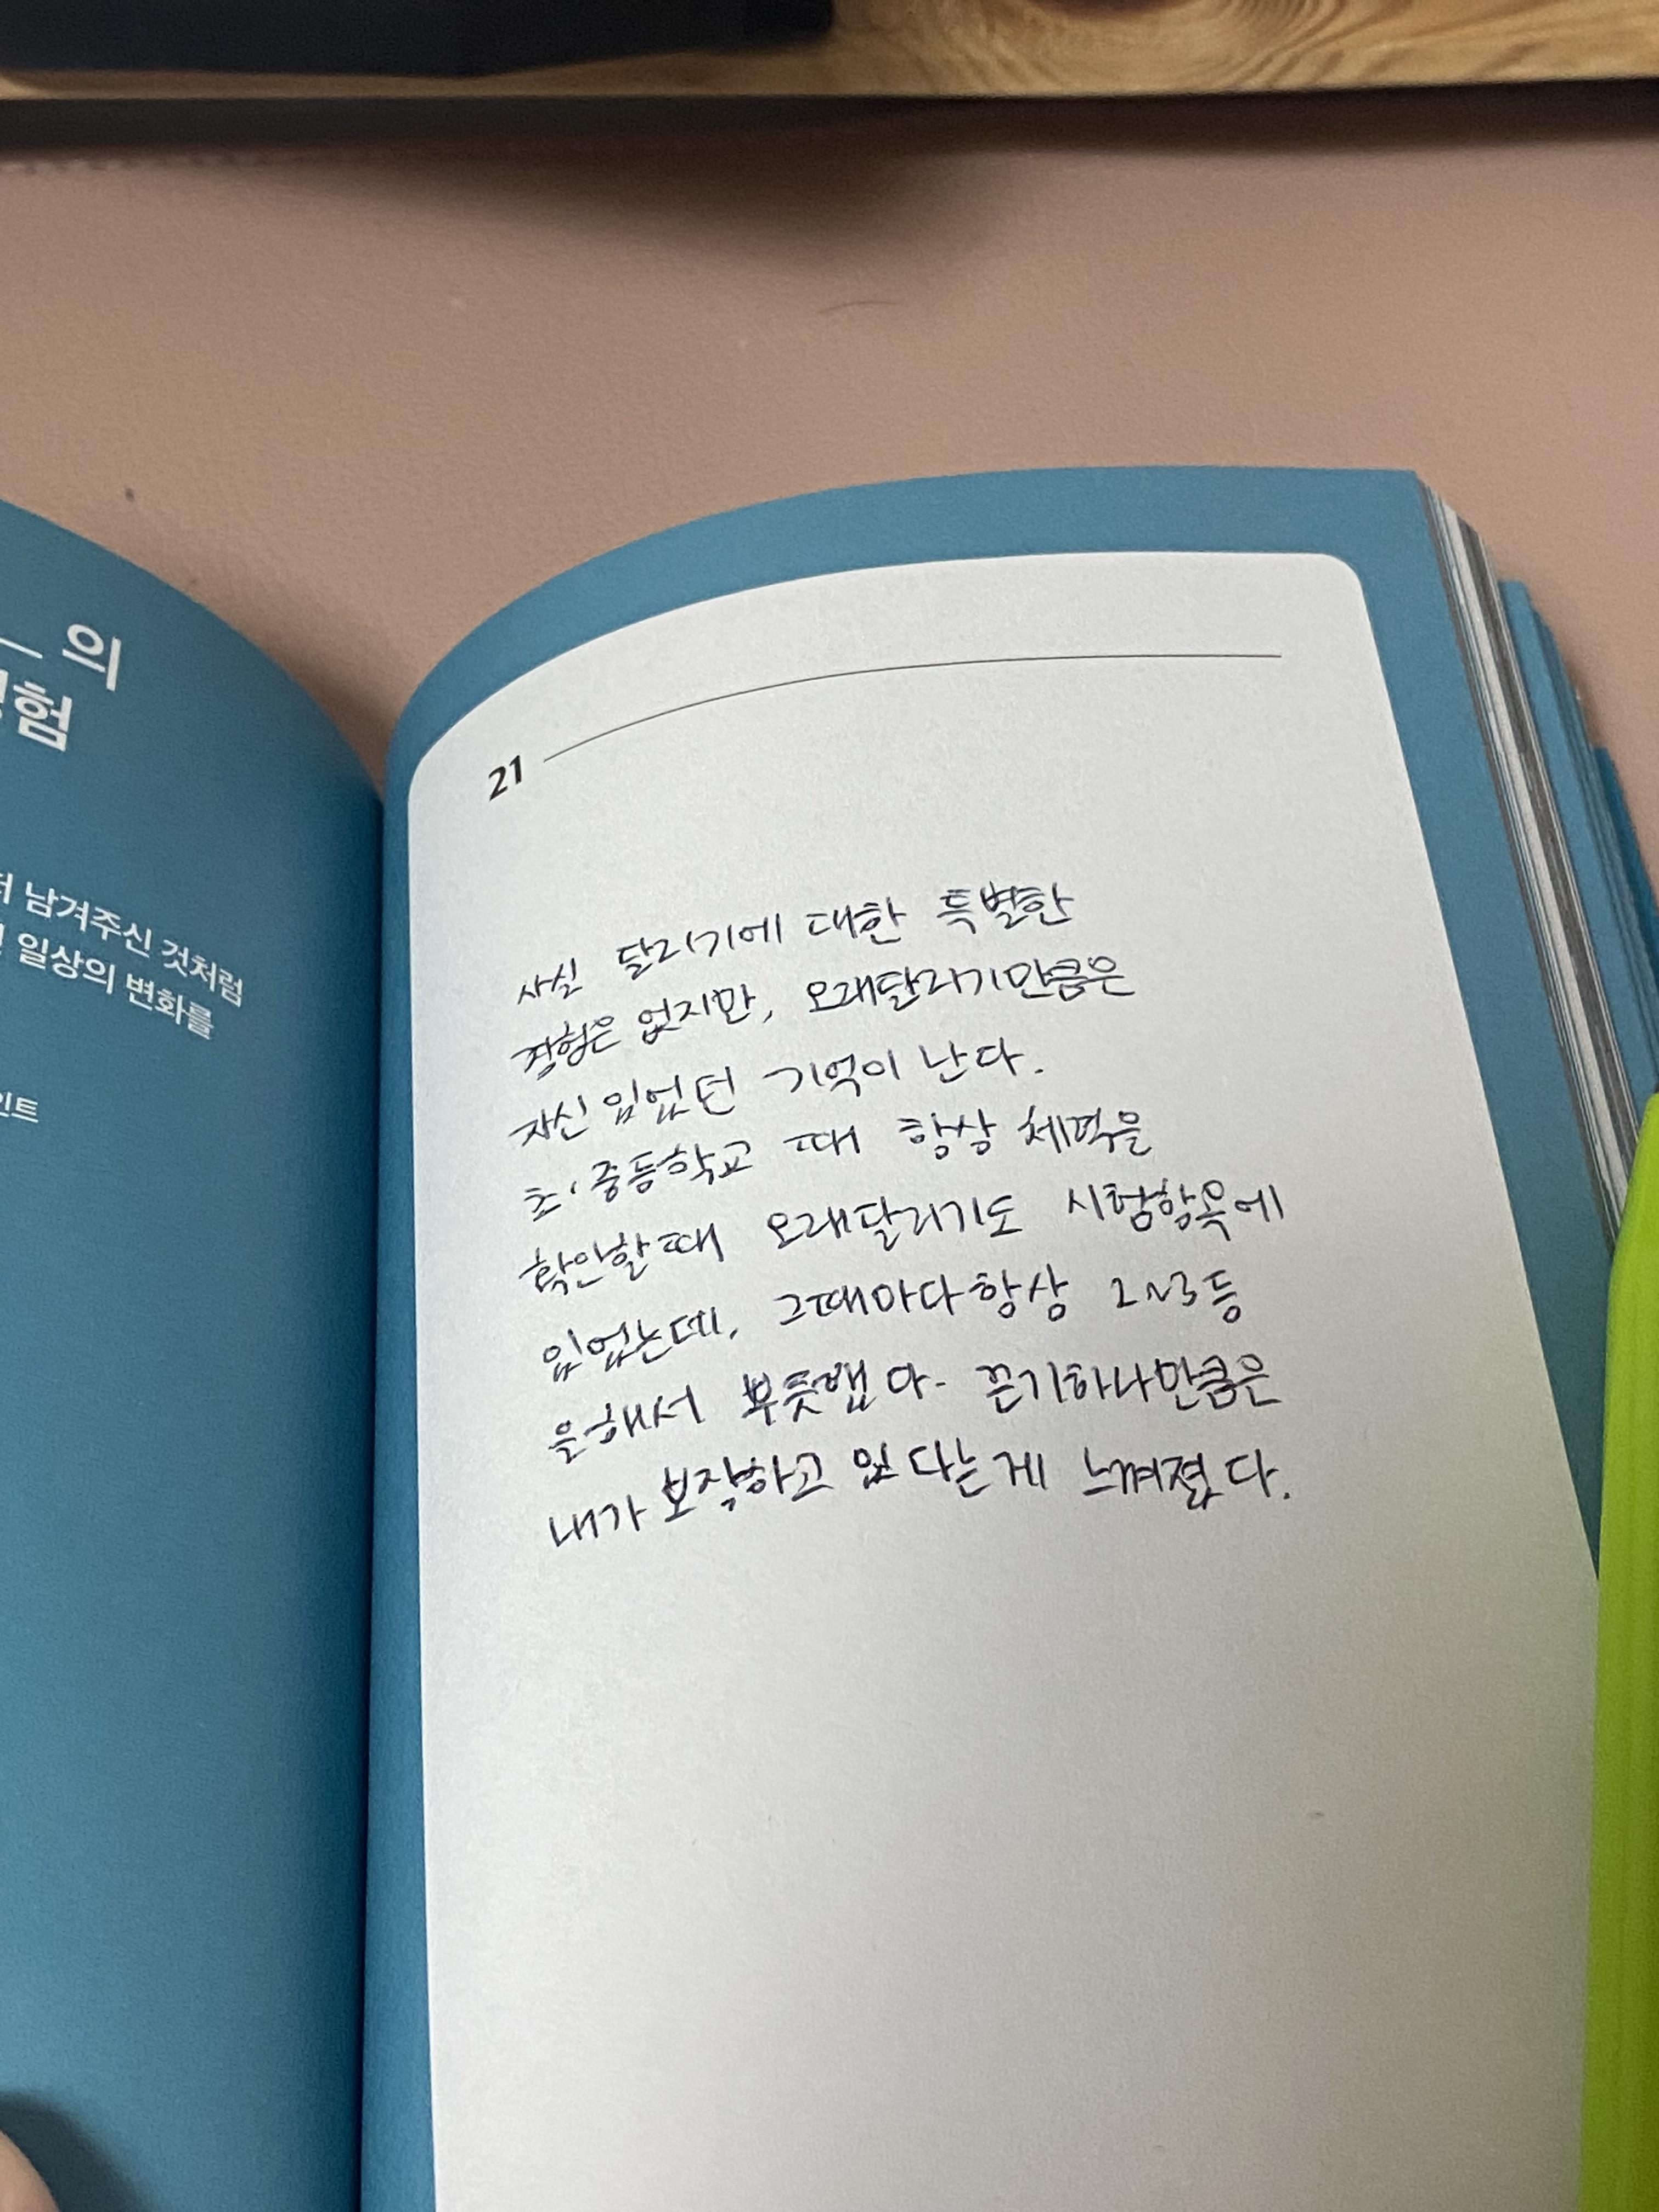 의
험
남겨주신 것처럼
일상의 변화를
인트
21
사실 달리기에 대한 특별한
경험은 없지만, 오래달리기만큼은
자신있었던 기억이 난다.
초,중등학교 때 항상 체력을
확인할때 오래달리기도 시험항목에
있었는데, 그때마다항상 2~3등
을해서 뿌듯했다. 끈기하나만큼은
내가 보장하고 있다는게 느껴졌다.